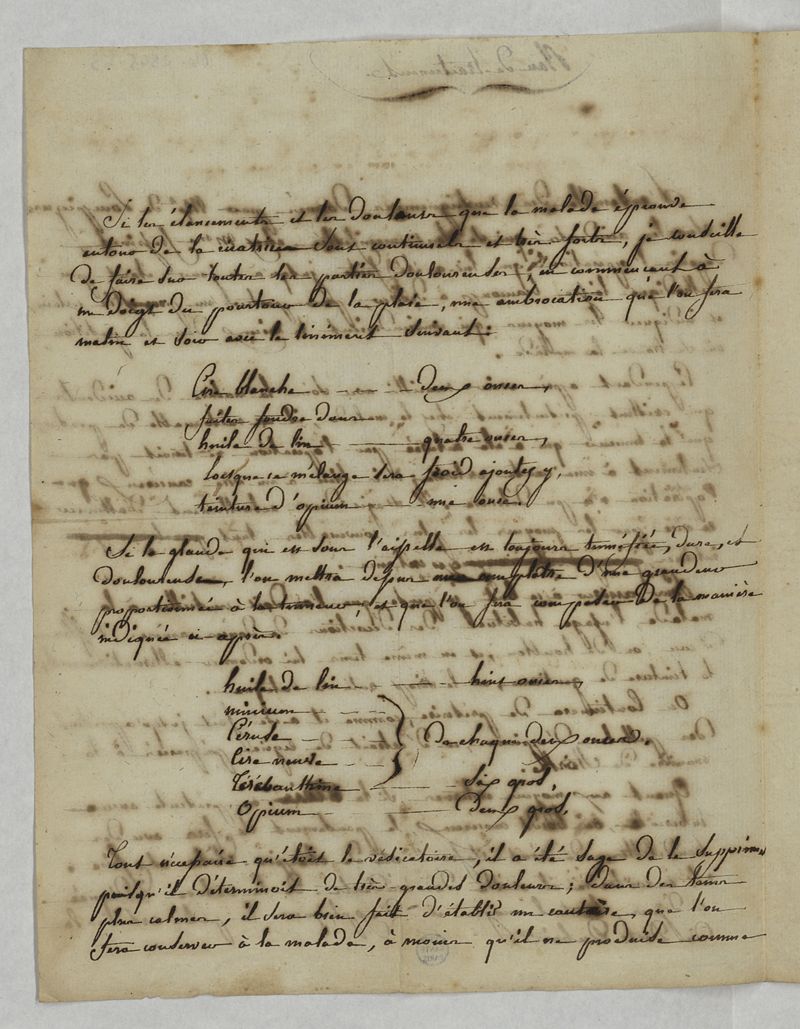 Plan de traitement
Si les élancements et les douleurs que la malade éprouve
autour de la cicatrice sont continuels et très forts, je conseille
de faire sur toutes les parties douloureuses, en commençant à
un doigt du pourtour de la plaie, une embrocation que l'on fera
matin et soir avec le liniment suivant:
Cire blanche - - - deux onces,
faites fondre dans
huile de lin - quatre onces,
lorsque ce mélange sera froid ajoutez y,
teinture d'opium - - une once.
Si la glande qui est sous l'aisselle est toujours tuméfiée, dure, et
douloureuse, l'on mettra dessus un emplâtre d'une grandeur
proportionnée à la tumeur, et que l'on fera composer de la manière
indiquée ci après.
huile de lin - - huit onces,
minium - - -
Céruse - - -
Cire neuve - -
de chaque deux onces,
Térébenthine - six gros,
Opium - deux gros,
Tout nécessaire qu'étoit le vésicatoire, il a été sage de le supprimer
puisqu'il déterminoit de très grandes douleurs; dans des tems
plus calmes, il sera bien fait d'établir un cautère, que l'on
fera conserver à la malade, à moins qu'il ne produise comme